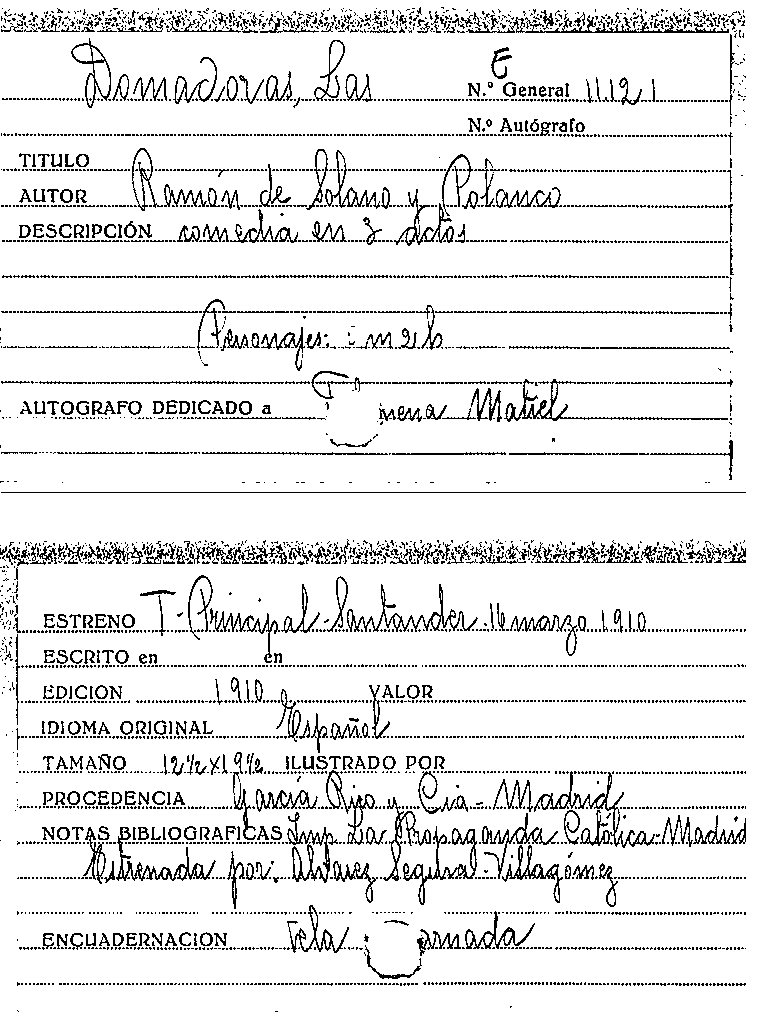 Domadoras, Las
E
N.º General 11121
N.º Autógrafo
TITULO
AUTOR Ramón de Solano y Polanco
DESCRIPCIÓN comedia en 3 actos
Personajes: m 2 h
AUTOGRAFO DEDICADO a mena Matiel
ESTRENO T. Principal - Santander. 16 marzo 1910
ESCRITO en en
EDICION 1910 VALOR
IDIOMA ORIGINAL Español
TAMAÑO 12½x19½ ILUSTRADO POR
PROCEDENCIA García Rico y Cía - Madrid
NOTAS BIBLIOGRAFICAS Imp La Propaganda Católica - Madrid
Estrenada por: Alvarez Segura - Villagómez
ENCUADERNACION Tela